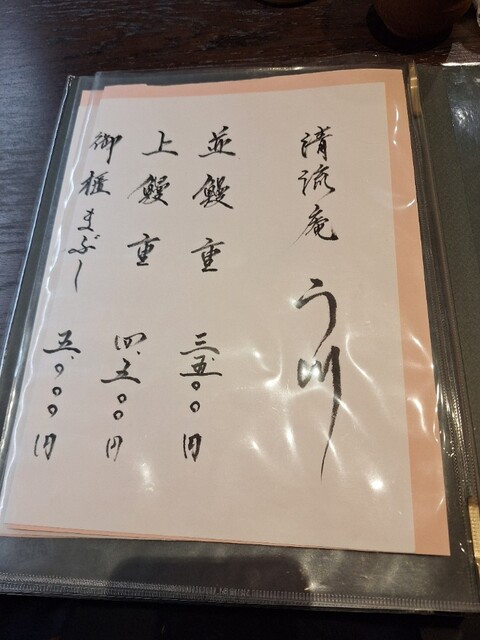 清流庵 うな川
並鰻重 三、五〇〇円
上鰻重 四、五〇〇円
御櫃まぶし 五、〇〇〇円